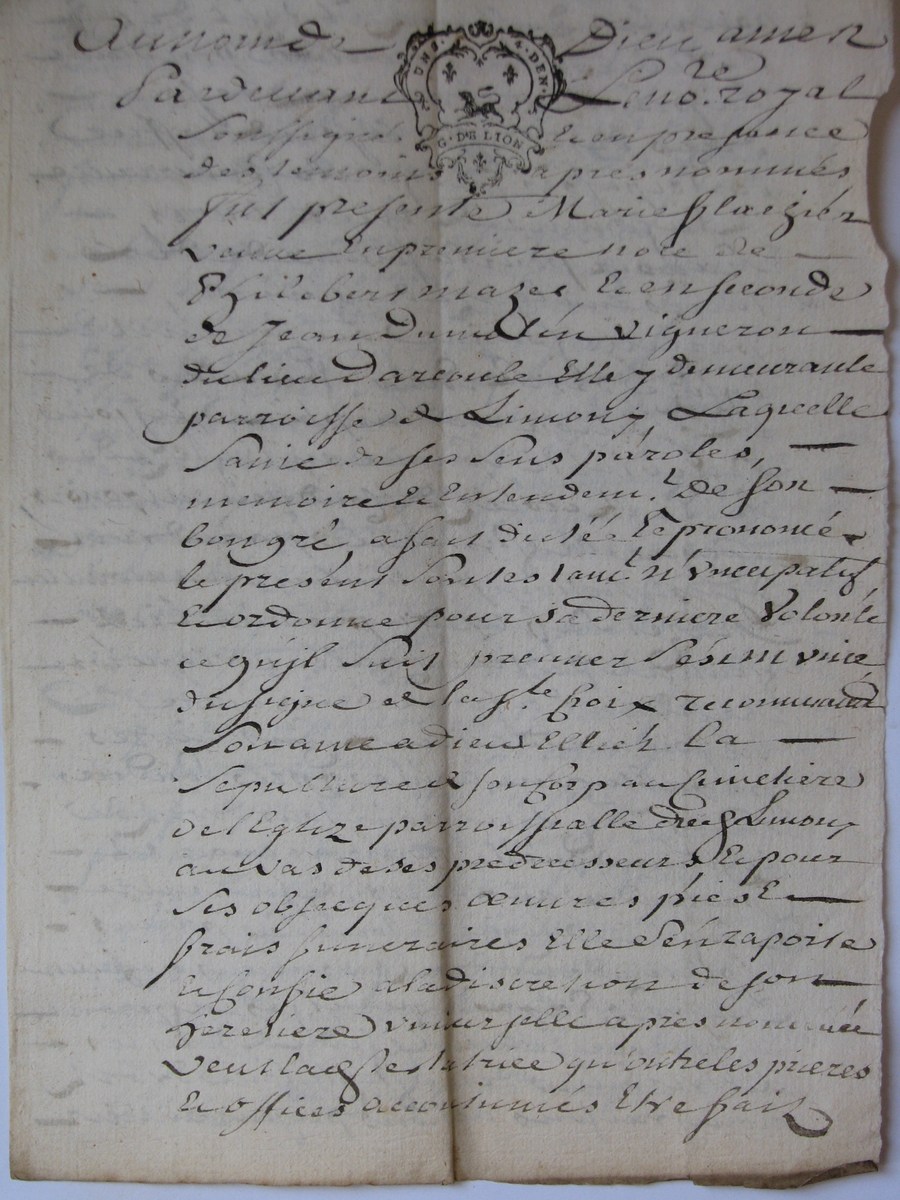 Au nom de Dieu amen
AC. DNS. 4. DEN.
Pardevant Le no.re royal
G. DE LION
Soussigné Et en presence
des temoins apres nommés
fut presente Marie
veuve En premiere noce de
Philibert mazet Et en seconde
de Jean Dumolin vigneron
du lieu Darcoule Elle y demeurante
parroisse de Limony Laquelle
Saine de ses Sens paroles,
memoire Et Entendem.t De son
bon gré a fait dicté Et prononcé
le present Son testam.t nuncupatif
Et ordonne pour sa derniere Volonté
ce qu'il Suit premier S'etant munie
du signe de la S.te Croix recommandé
Son ame a dieu Ellich La
Sepulture de son Corp au Cimetiere
de l'Eglize parroissialle dud Limony
au vas de ses predecesseurs Et pour
Ses obseques œuvres pies Et
frais funeraires Elle S'en raporte
Et Confie a la discretion de son
heretiere universelle apres nommée
veut lad Testatrice qu'outre les prieres
Et offices accoutumés Etre fait